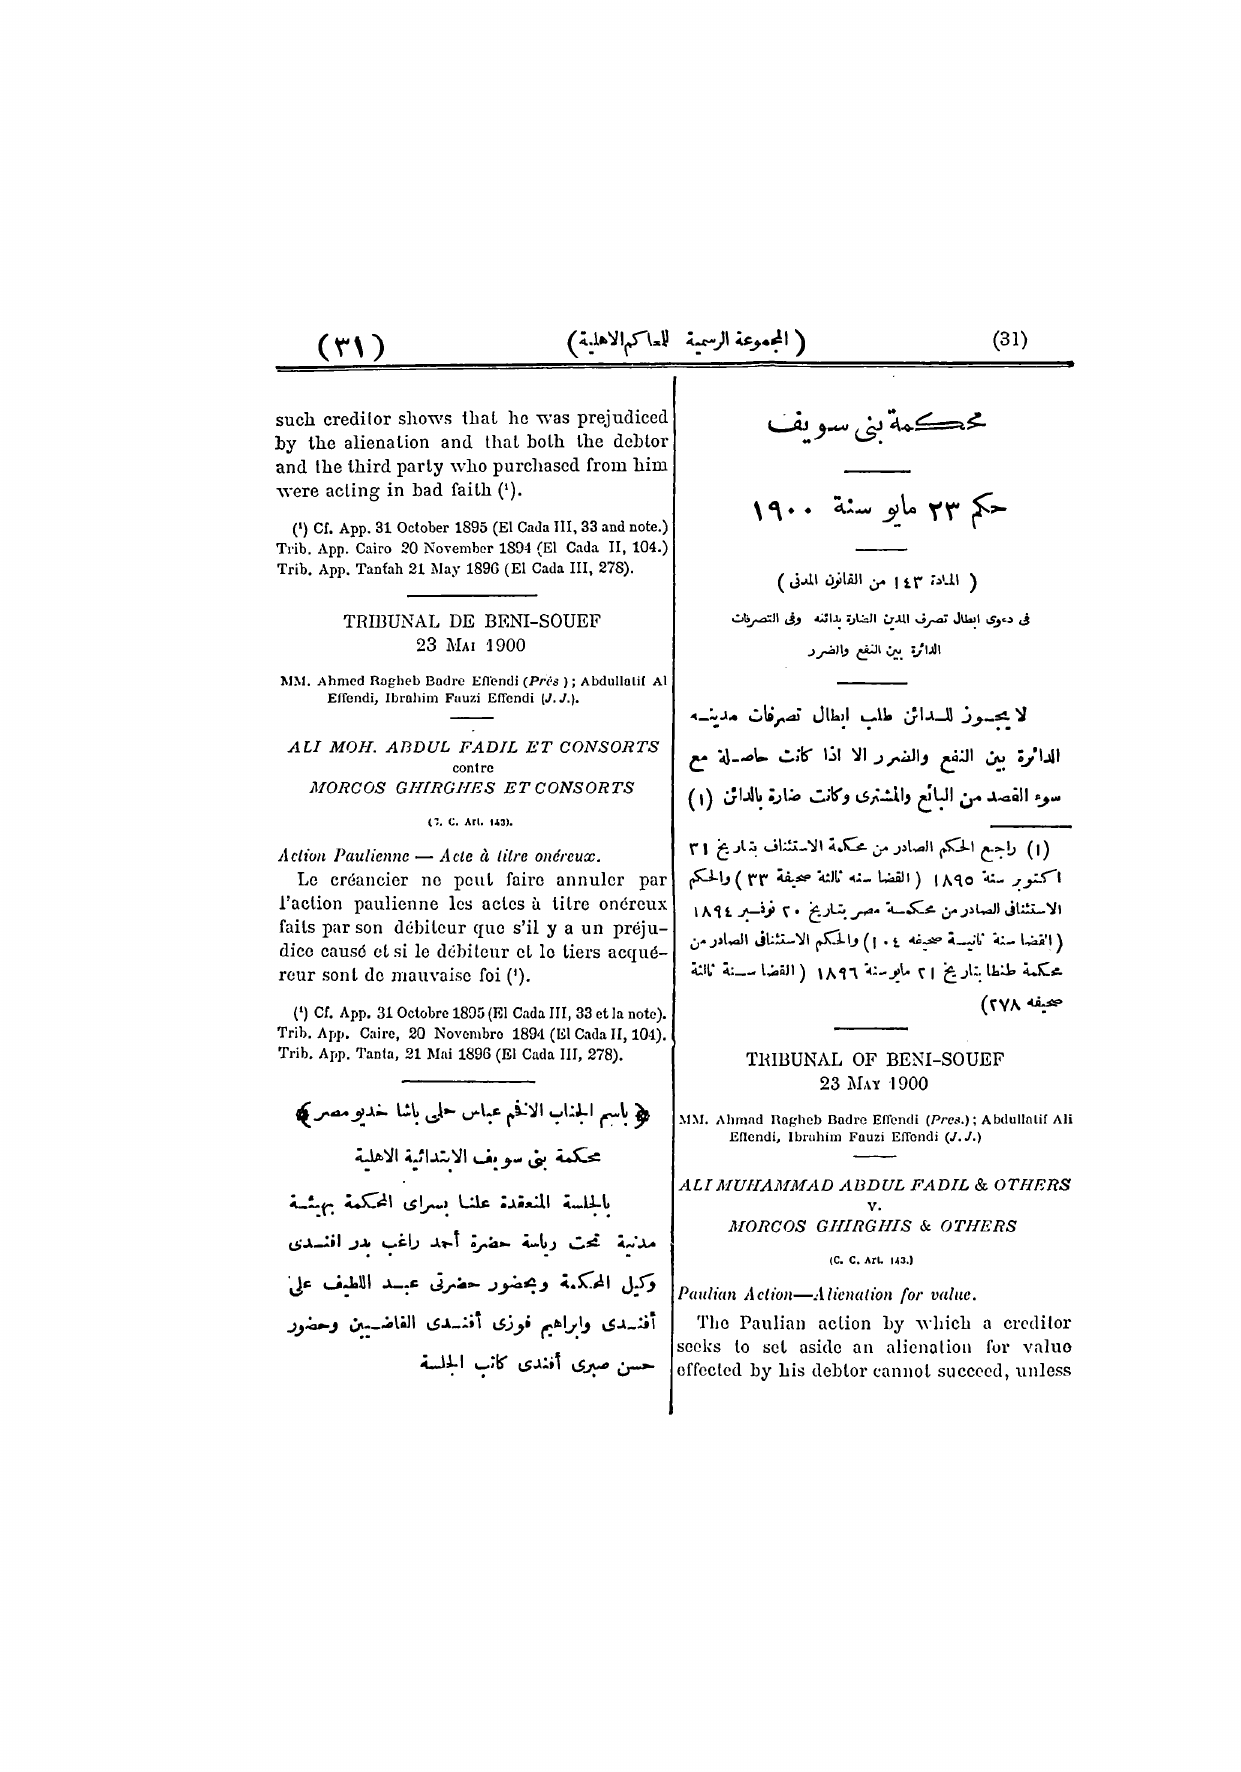 (31)
( المجموعة الرسمية للمحاكم الاهلية )
(٣١)
محكمة بنى سويف
حكم ٢٣ مايو سنة ١٩٠٠
( المادة ١٤٣ من القانون المدنى )
فى دعوى ابطال تصرف المدين الضارة بدائنه وفى التصرفات
الدائرة بين النفع والضرر
لا يجوز للدائن طلب ابطال تصرفات مدينه
الدائرة بين النفع والضرر الا اذا كانت حاصلة مع
سوء القصد من البائع والمشترى وكانت ضارة بالدائن (١)
(١) راجع الحكم الصادر من محكمة الاستئناف بتاريخ ٣١
اكتوبر سنة ١٨٩٥ ( القضا سنه ثالثة صحيفة ٣٣ ) والحكم
الاستئنافى الصادر من محكمة مصر بتاريخ ٢٠ نوفمبر ١٨٩٤
(القضا سنة ثانية صحيفه ١٠٤) والحكم الاستئنافى الصادر من
محكمة طنطا بتاريخ ٢١ مايو سنة ١٨٩٦ ( القضا سنة ثالثة
صحيفه ٢٧٨)
TRIBUNAL OF BENI-SOUEF
23 MAY 1900
MM. Ahmad Ragheb Badre Effendi (Pres.); Abdullatif Ali
Effendi, Ibrahim Fauzi Effendi (J.J.)
ALI MUHAMMAD ABDUL FADIL & OTHERS
v.
MORCOS GHIRGHIS & OTHERS
(C. C. Art. 143.)
Paulian Action—Alienation for value.
The Paulian action by which a creditor
seeks to set aside an alienation for value
effected by his debtor cannot succeed, unless
such creditor shows that he was prejudiced
by the alienation and that both the debtor
and the third party who purchased from him
were acting in bad faith (¹).
(¹) Cf. App. 31 October 1895 (El Cada III, 33 and note.)
Trib. App. Cairo 20 November 1894 (El Cada II, 104.)
Trib. App. Tantah 21 May 1896 (El Cada III, 278).
TRIBUNAL DE BENI-SOUEF
23 MAI 1900
MM. Ahmed Ragheb Badre Effendi (Prés ); Abdullatif Al
Effendi, Ibrahim Fauzi Effendi (J.J.).
ALI MOH. ABDUL FADIL ET CONSORTS
contre
MORCOS GHIRGHES ET CONSORTS
(C. C. Art. 143).
Action Paulienne — Acte à titre onéreux.
Le créancier ne peut faire annuler par
l'action paulienne les actes à titre onéreux
faits par son débiteur que s'il y a un préju-
dice causé et si le débiteur et le tiers acqué-
reur sont de mauvaise foi (¹).
(¹) Cf. App. 31 Octobre 1895 (El Cada III, 33 et la note).
Trib. App. Caire, 20 Novembre 1894 (El Cada II, 104).
Trib. App. Tanta, 21 Mai 1896 (El Cada III, 278).
﴿ باسم الجناب الافخم عباس حلمى باشا خديو مصر ﴾
محكمة بنى سويف الابتدائية الاهلية
بالجلسة المنعقدة علنا بسراى المحكمة بهيئة
مدنية تحت رياسة حضرة أحمد راغب بدر افندى
وكيل المحكمة وبحضور حضرتى عبد اللطيف على
أفندى وابراهيم فوزى أفندى القاضيين وحضور
حسن صبرى أفندى كاتب الجلسة